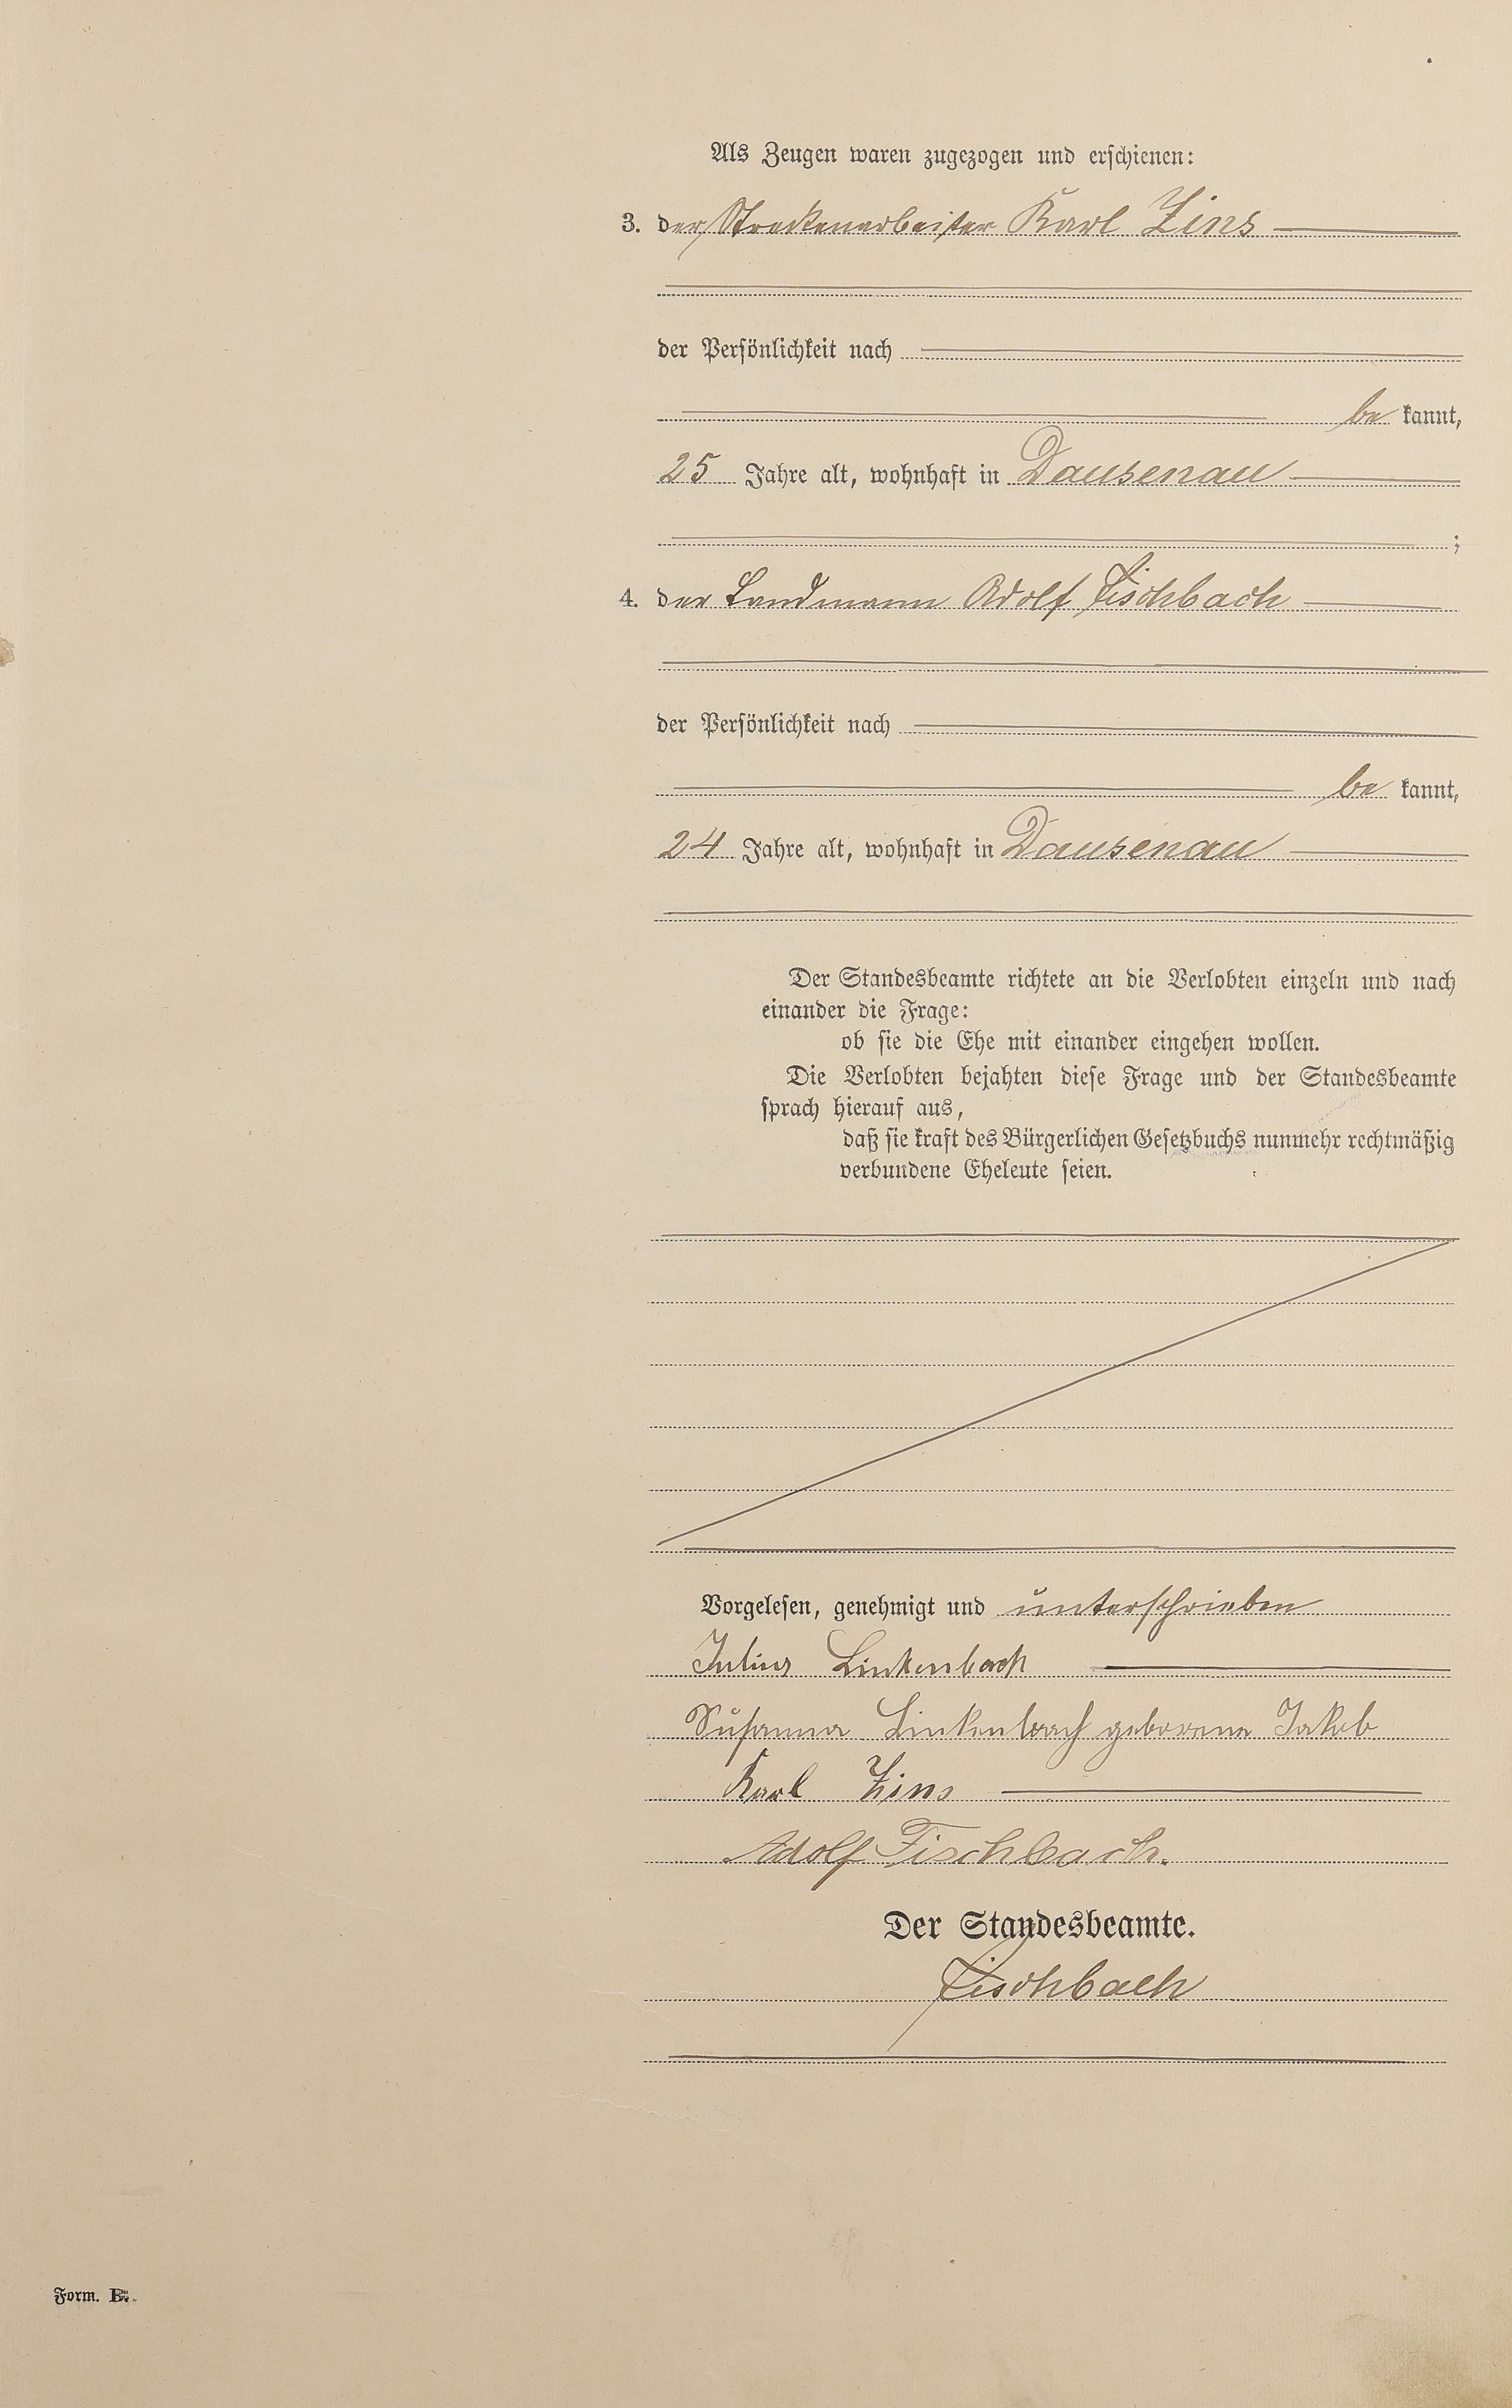 Als Zeugen waren zugezogen und erschienen:
3. der Streckenarbeiter Karl Zins
der Persönlichkeit nach
be kannt,
25 Jahre alt, wohnhaft in Dausenau
;
4. der Landmann Adolf Fischbach
der Persönlichkeit nach
be kannt,
24 Jahre alt, wohnhaft in Dausenau
Der Standesbeamte richtete an die Verlobten einzeln und nach
einander die Frage:
ob sie die Ehe mit einander eingehen wollen.
Die Verlobten bejahten diese Frage und der Standesbeamte
sprach hierauf aus,
daß sie kraft des Bürgerlichen Gesetzbuchs nunmehr rechtmäßig
verbundene Eheleute seien.
Vorgelesen, genehmigt und unterschrieben
Julius Linkenbach
Susanna Linkenbach geborene Jakob
Karl Zins
Adolf Fischbach.
Der Standesbeamte.
Fischbach
Form. B.